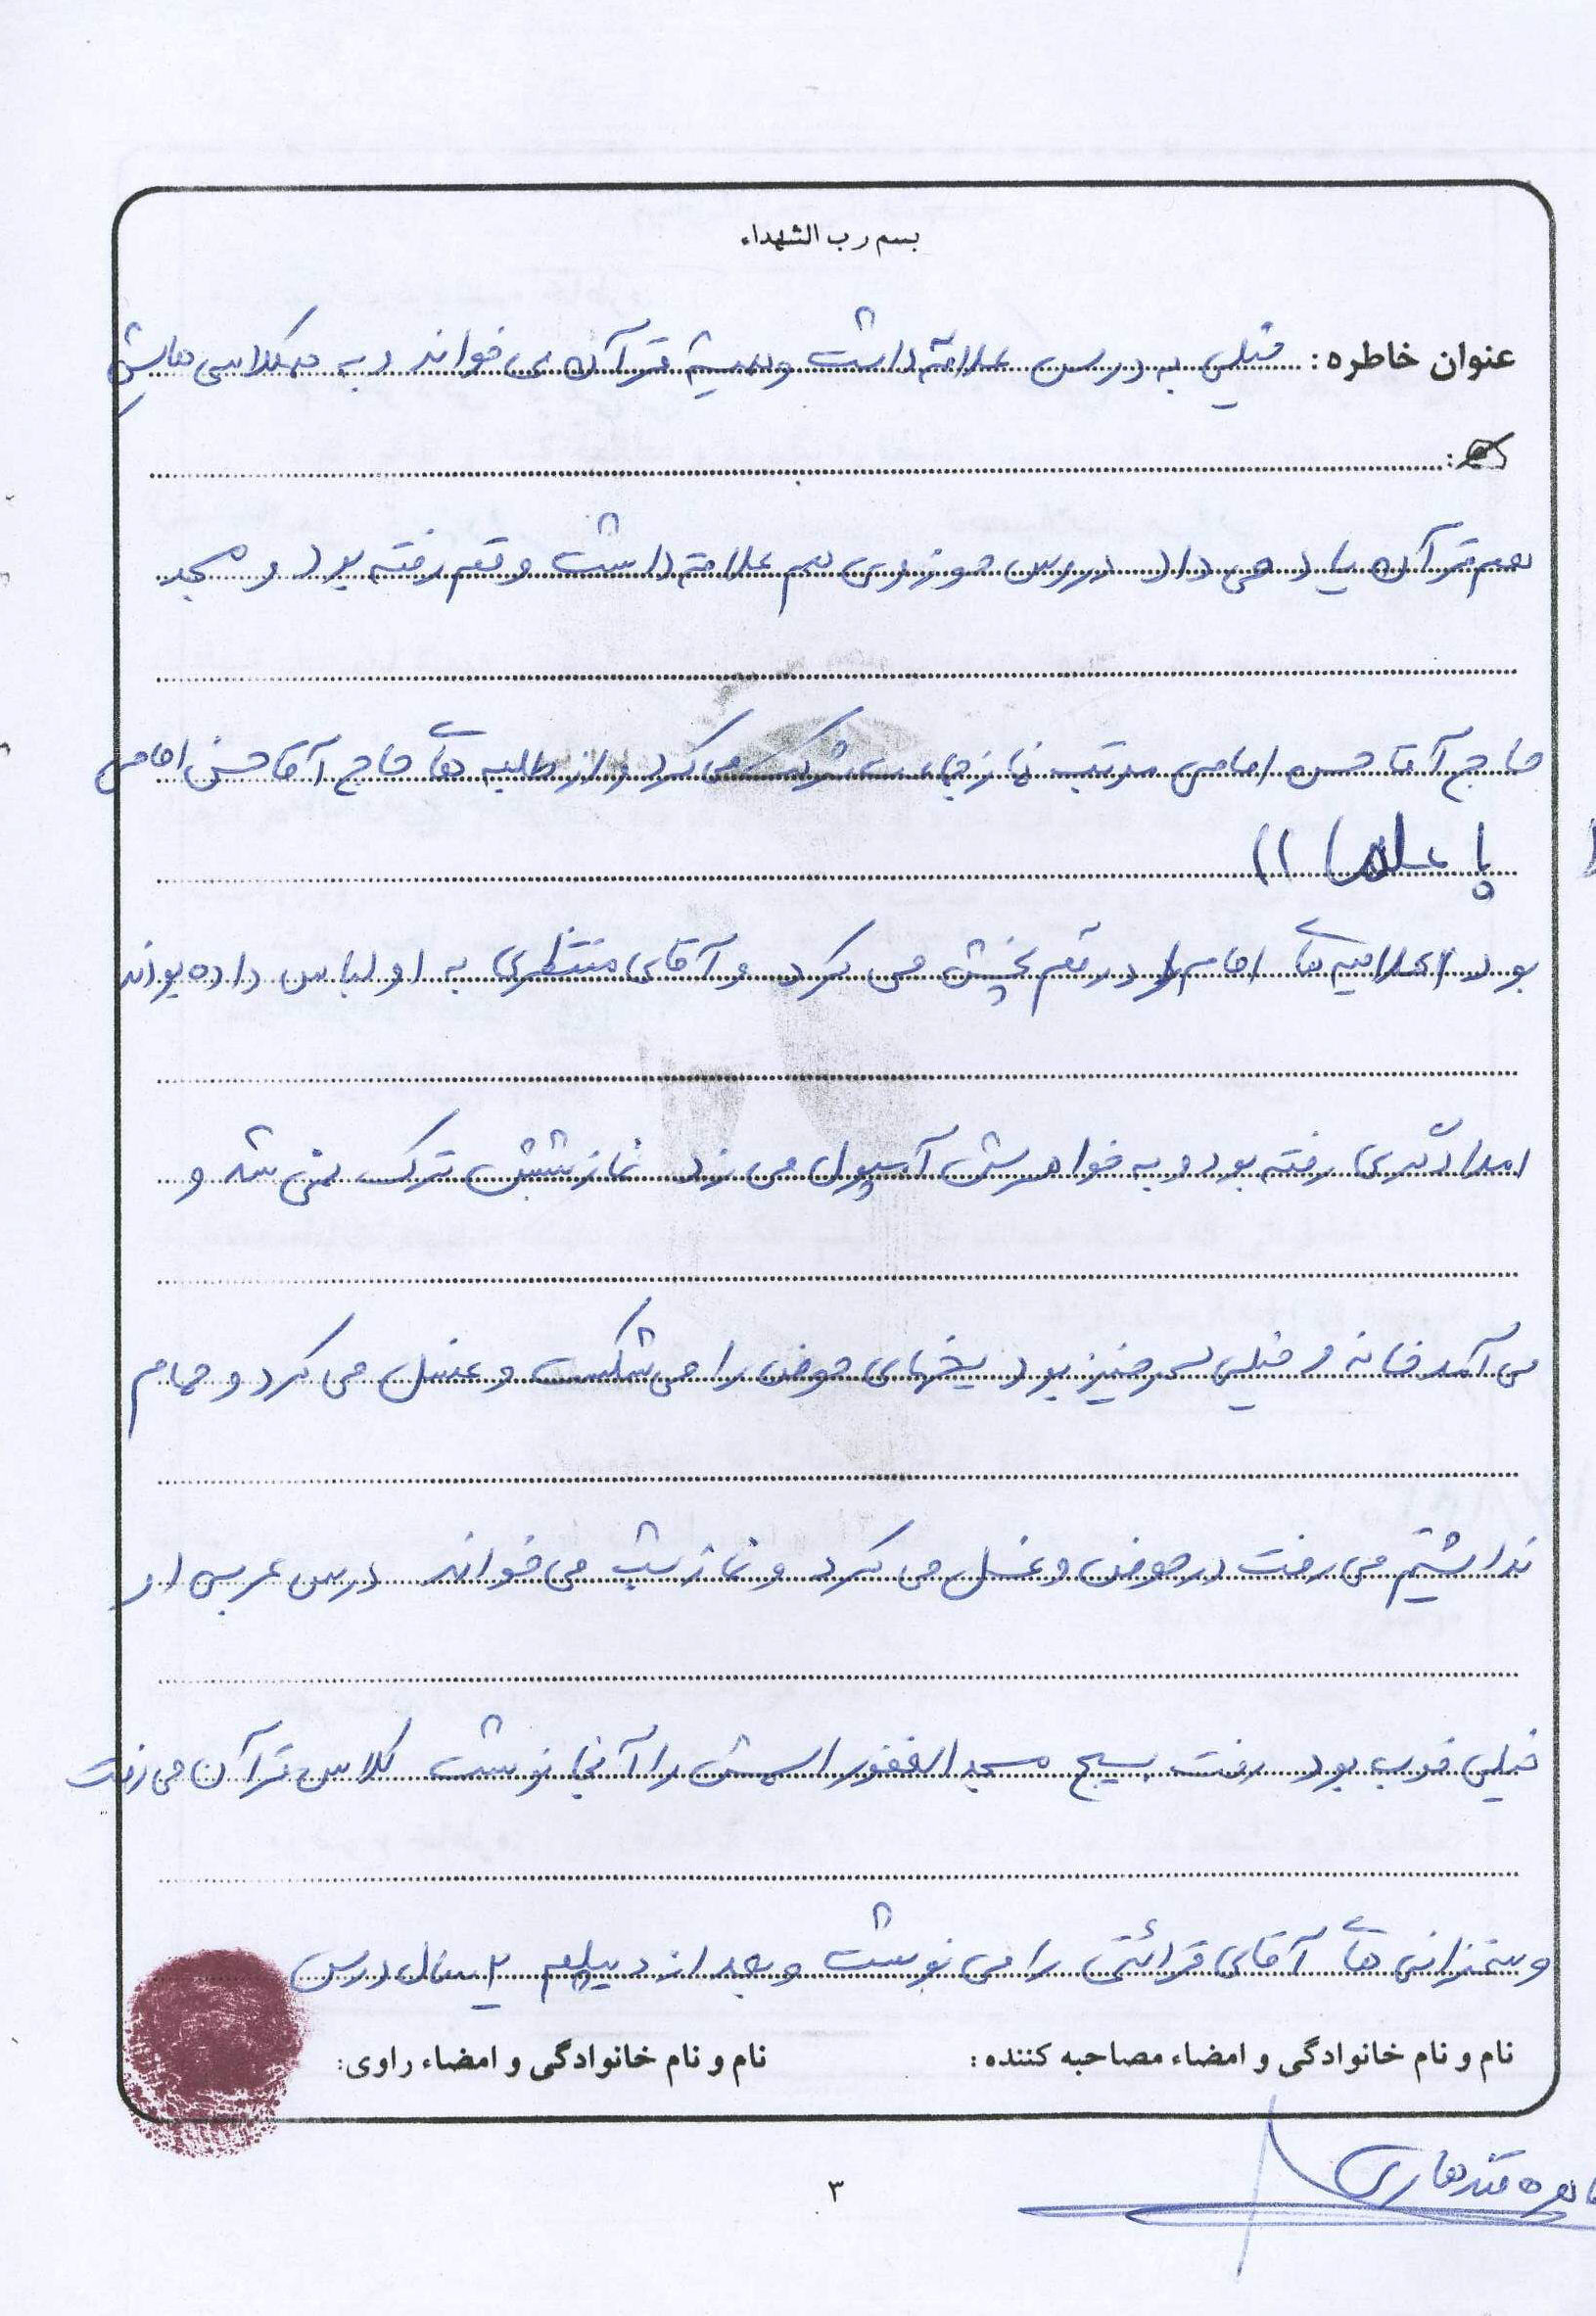 بسم رب الشهداء
عنوان خاطره: خیلی به درس علاقه داشت و همیشه قرآن می خواند و به همکلاسی هایش
هم قرآن یاد می داد دروس حوزوی هم علاقه داشت و قم رفته بود و مسجد
حاج آقا حسن امامی مرتب نماز جماعت شرکت می کرد و از طلبه های حاج آقا حسن امامی
بود اعلامیه های امام را در قم پخش می کرد و آقای منتظری به او لباس داده بودند
امدادگری رفته بود و به خواهرش آمپول می زد نماز شبش ترک نمی شد و
می آمد خانه و خیلی سحر خیز بود یخهای حوض را می شکست و غسل می کرد و حمام
نداشتیم می رفت در حوض و غسل می کرد و نماز شب می خواند درس عربی او
خیلی خوب بود رفت بسیج مسجد الغفور اسمش را آنجا نوشت کلاس قرآن می رفت
و سخنرانی های آقای قرائتی را می نوشت و بعد از دیپلم ۲ سال درس
نام و نام خانوادگی و امضاء مصاحبه کننده: نام و نام خانوادگی و امضاء راوی:
قندهاری
۳